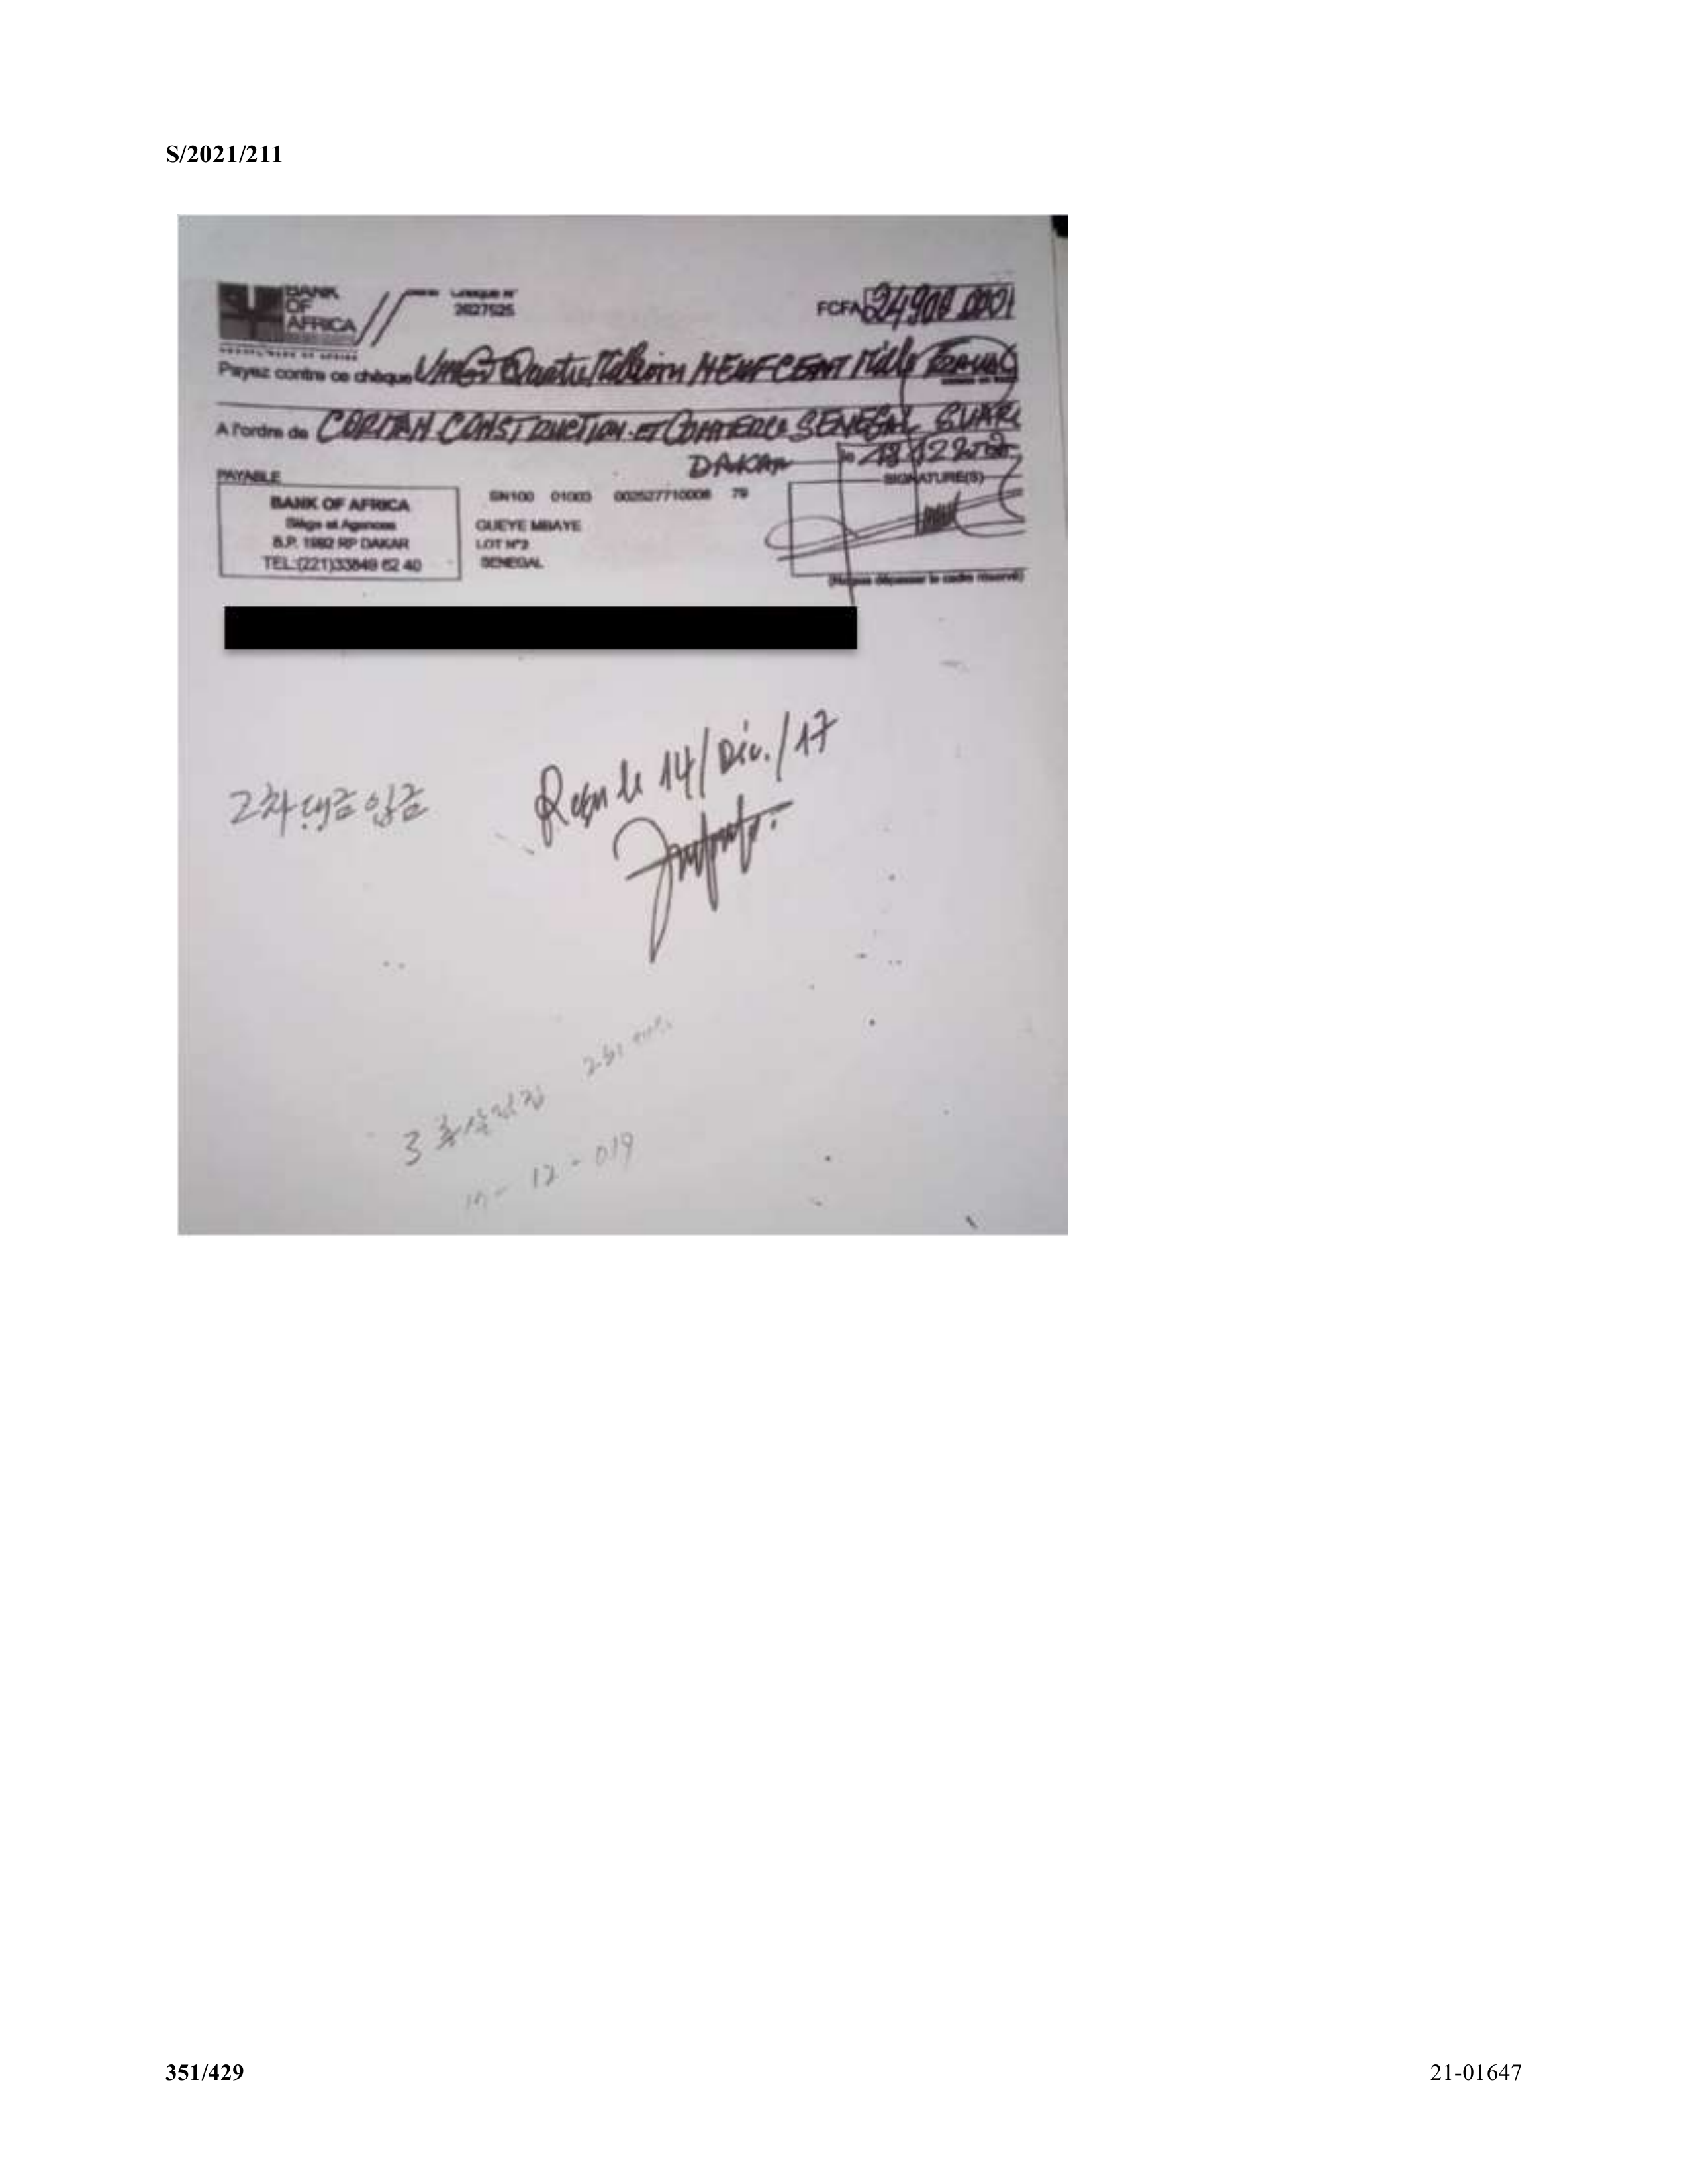 S/2021/211
BANK
OF
AFRICA
Chèque N°
2627525
FCFA 24900 000
Payez contre ce chèque Vingt Quatre Million NEUF CENT Mille
A l'ordre de CORMAN CONSTRUCTION ET COMMERCE SENEGAL SUARL
DAKAR le
PAYABLE
SIGNATURE(S)
BANK OF AFRICA
Siège et Agences
B.P. 1992 RP DAKAR
TEL:(221)33849 62 40
SN100 01003 002527710006 79
GUEYE MBAYE
LOT N°2
SENEGAL
(Ne pas dépasser le cadre réservé)
Reçu le 14/Déc./17
2차 대금 입금
3
12 - 019
351/429
21-01647